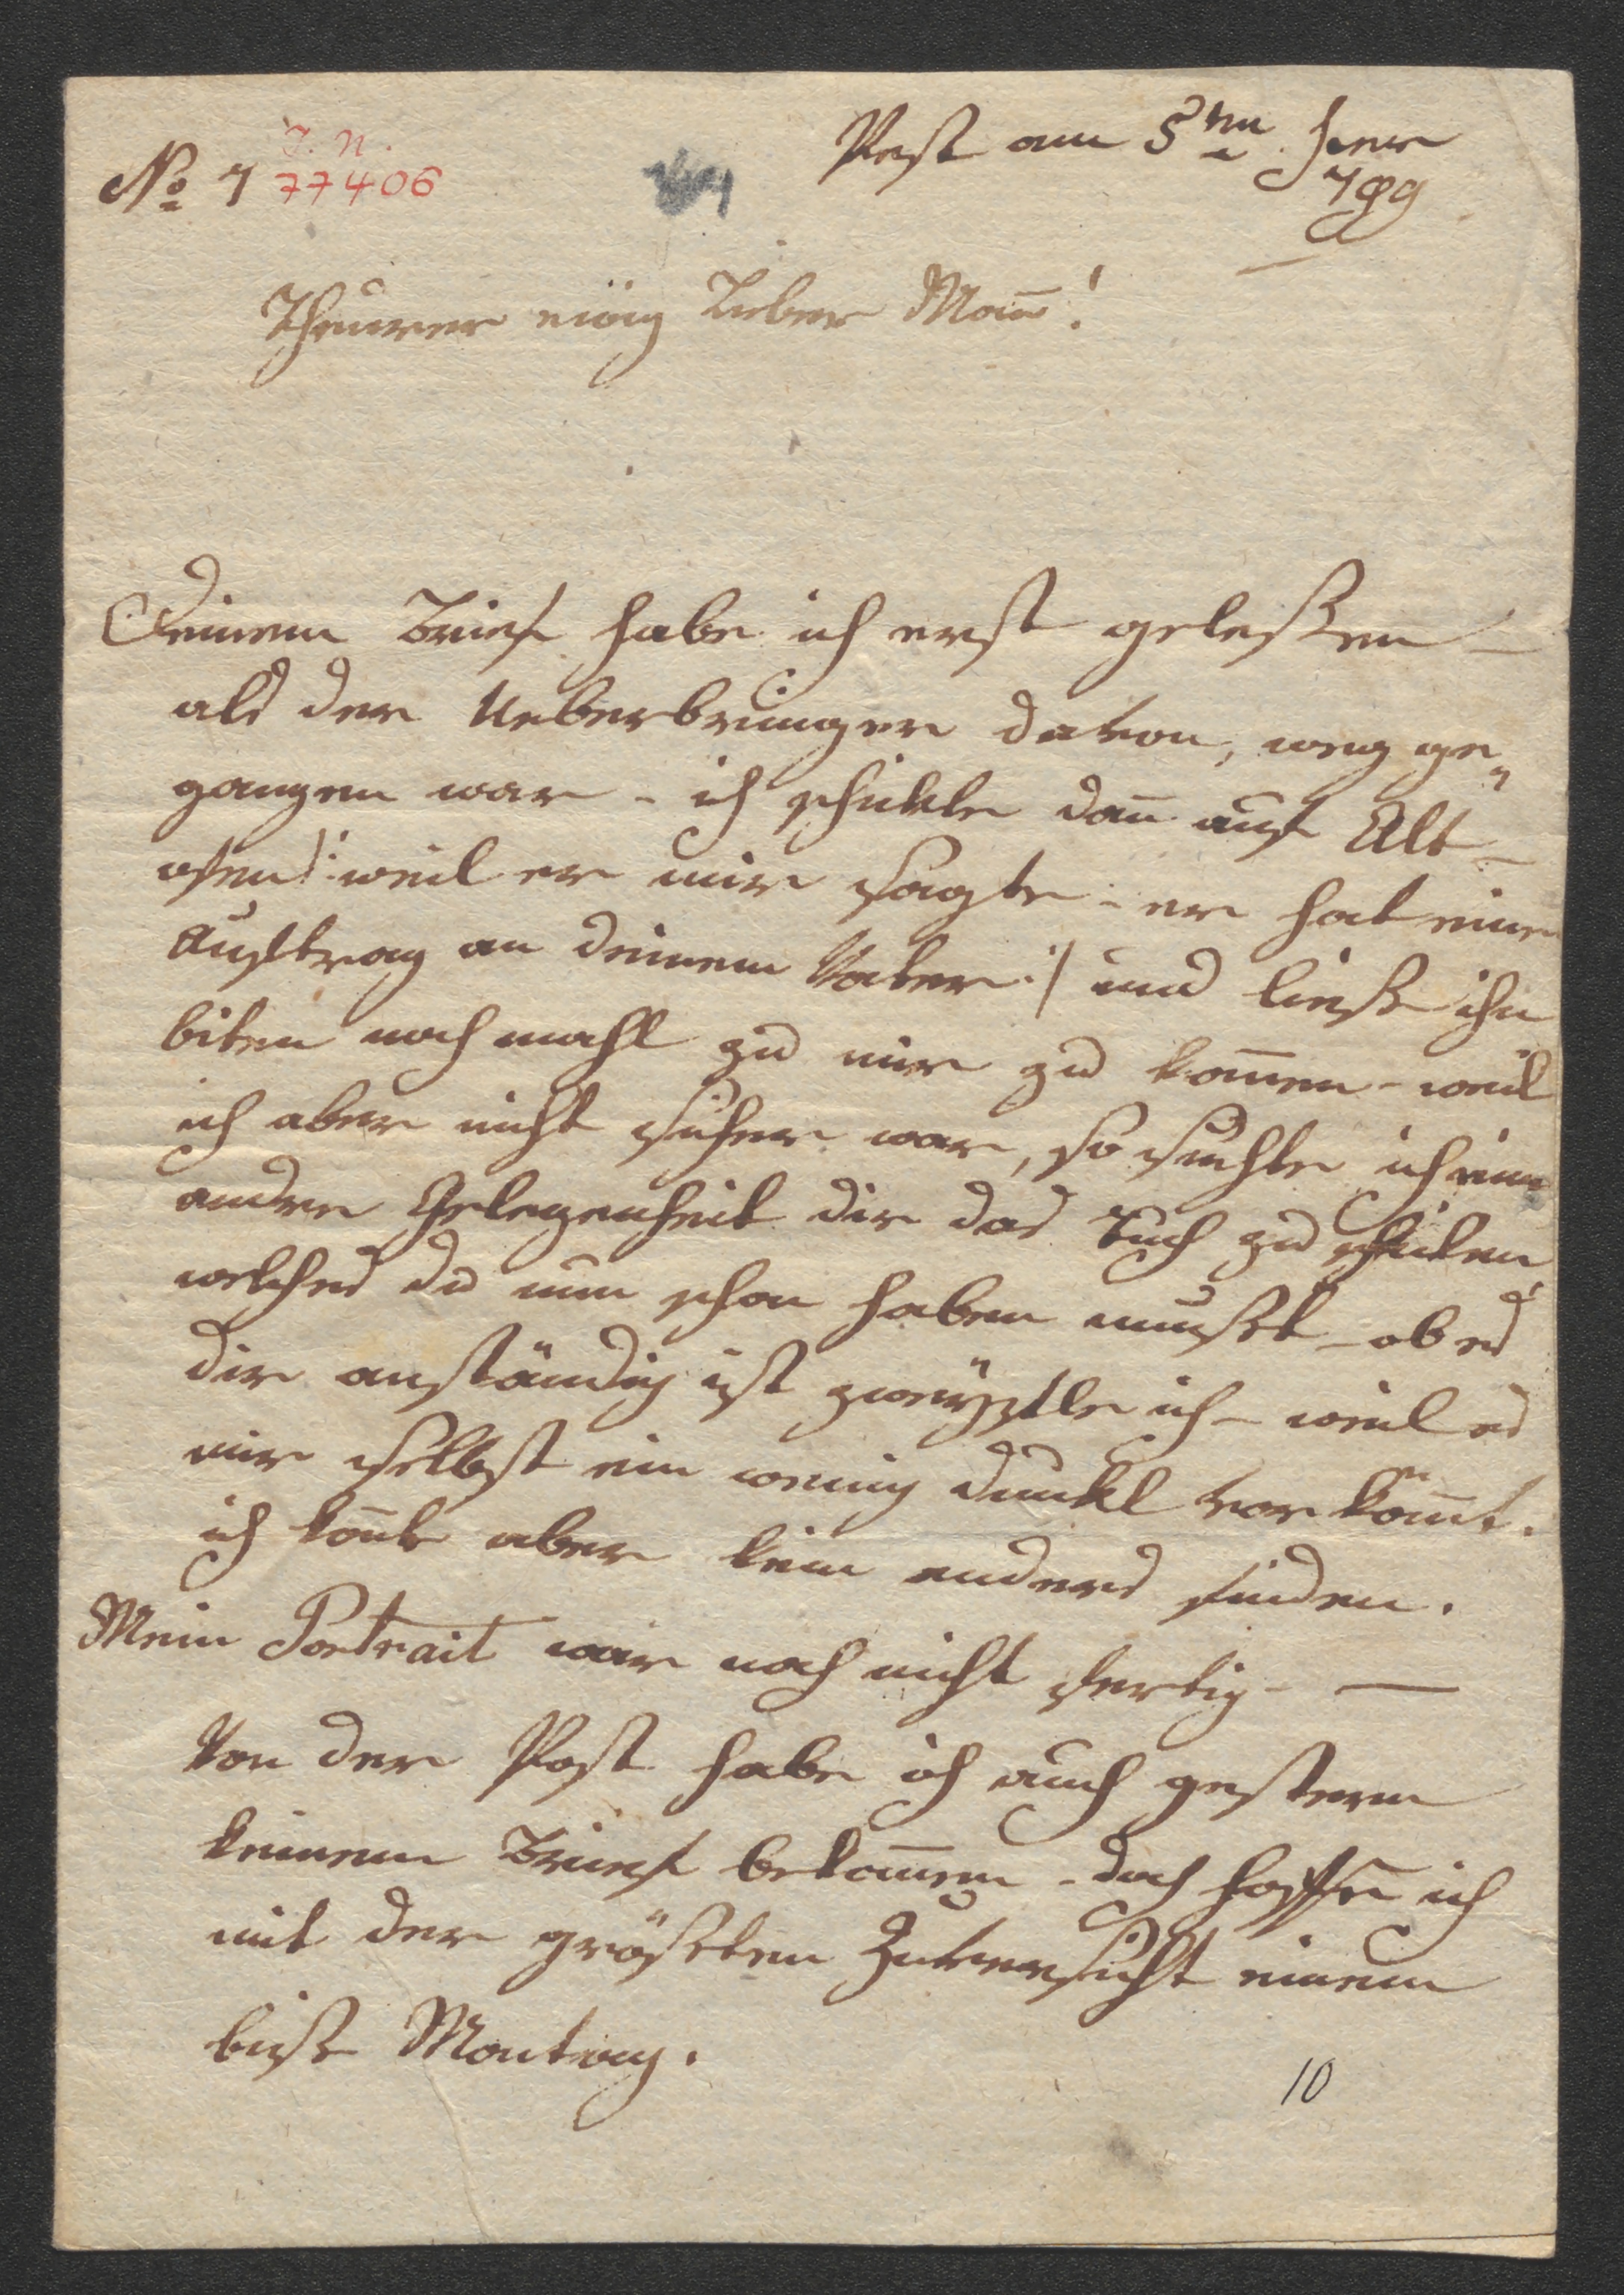 I. N.
No 1 77406
Pest am 5ten Jener
799
Theurer einig Lieber Man̅!
Deinem Brief habe ich erst geleßen –
als der Ueberbringer davon, weg ge„
gangen war – ich schikte dan̅ auf Alt–
ofen |: weil er mir sagte – er hat einen
Auftrag an deinem Vater :| und ließe ihn
biten noch mahl zu mir zu kom̅en – weil
ich aber nicht sicher war, so suchte ich eine
andre Gelegenheit dir das Tuch zu schiken
welches du nun schon haben mußt – ob es
dir anständig ist zweyfle ich – weil es
mir selbst ein wenig dunkl vor kom̅t.
ich kon̅te aber kein anders finden.
Mein Portrait war noch nicht fertig – —
Von der Post habe ich auch gestern
keinem Brief bekom̅en – doch hoffe ich
mit der größten Zuversicht einem
biß Montag.
10